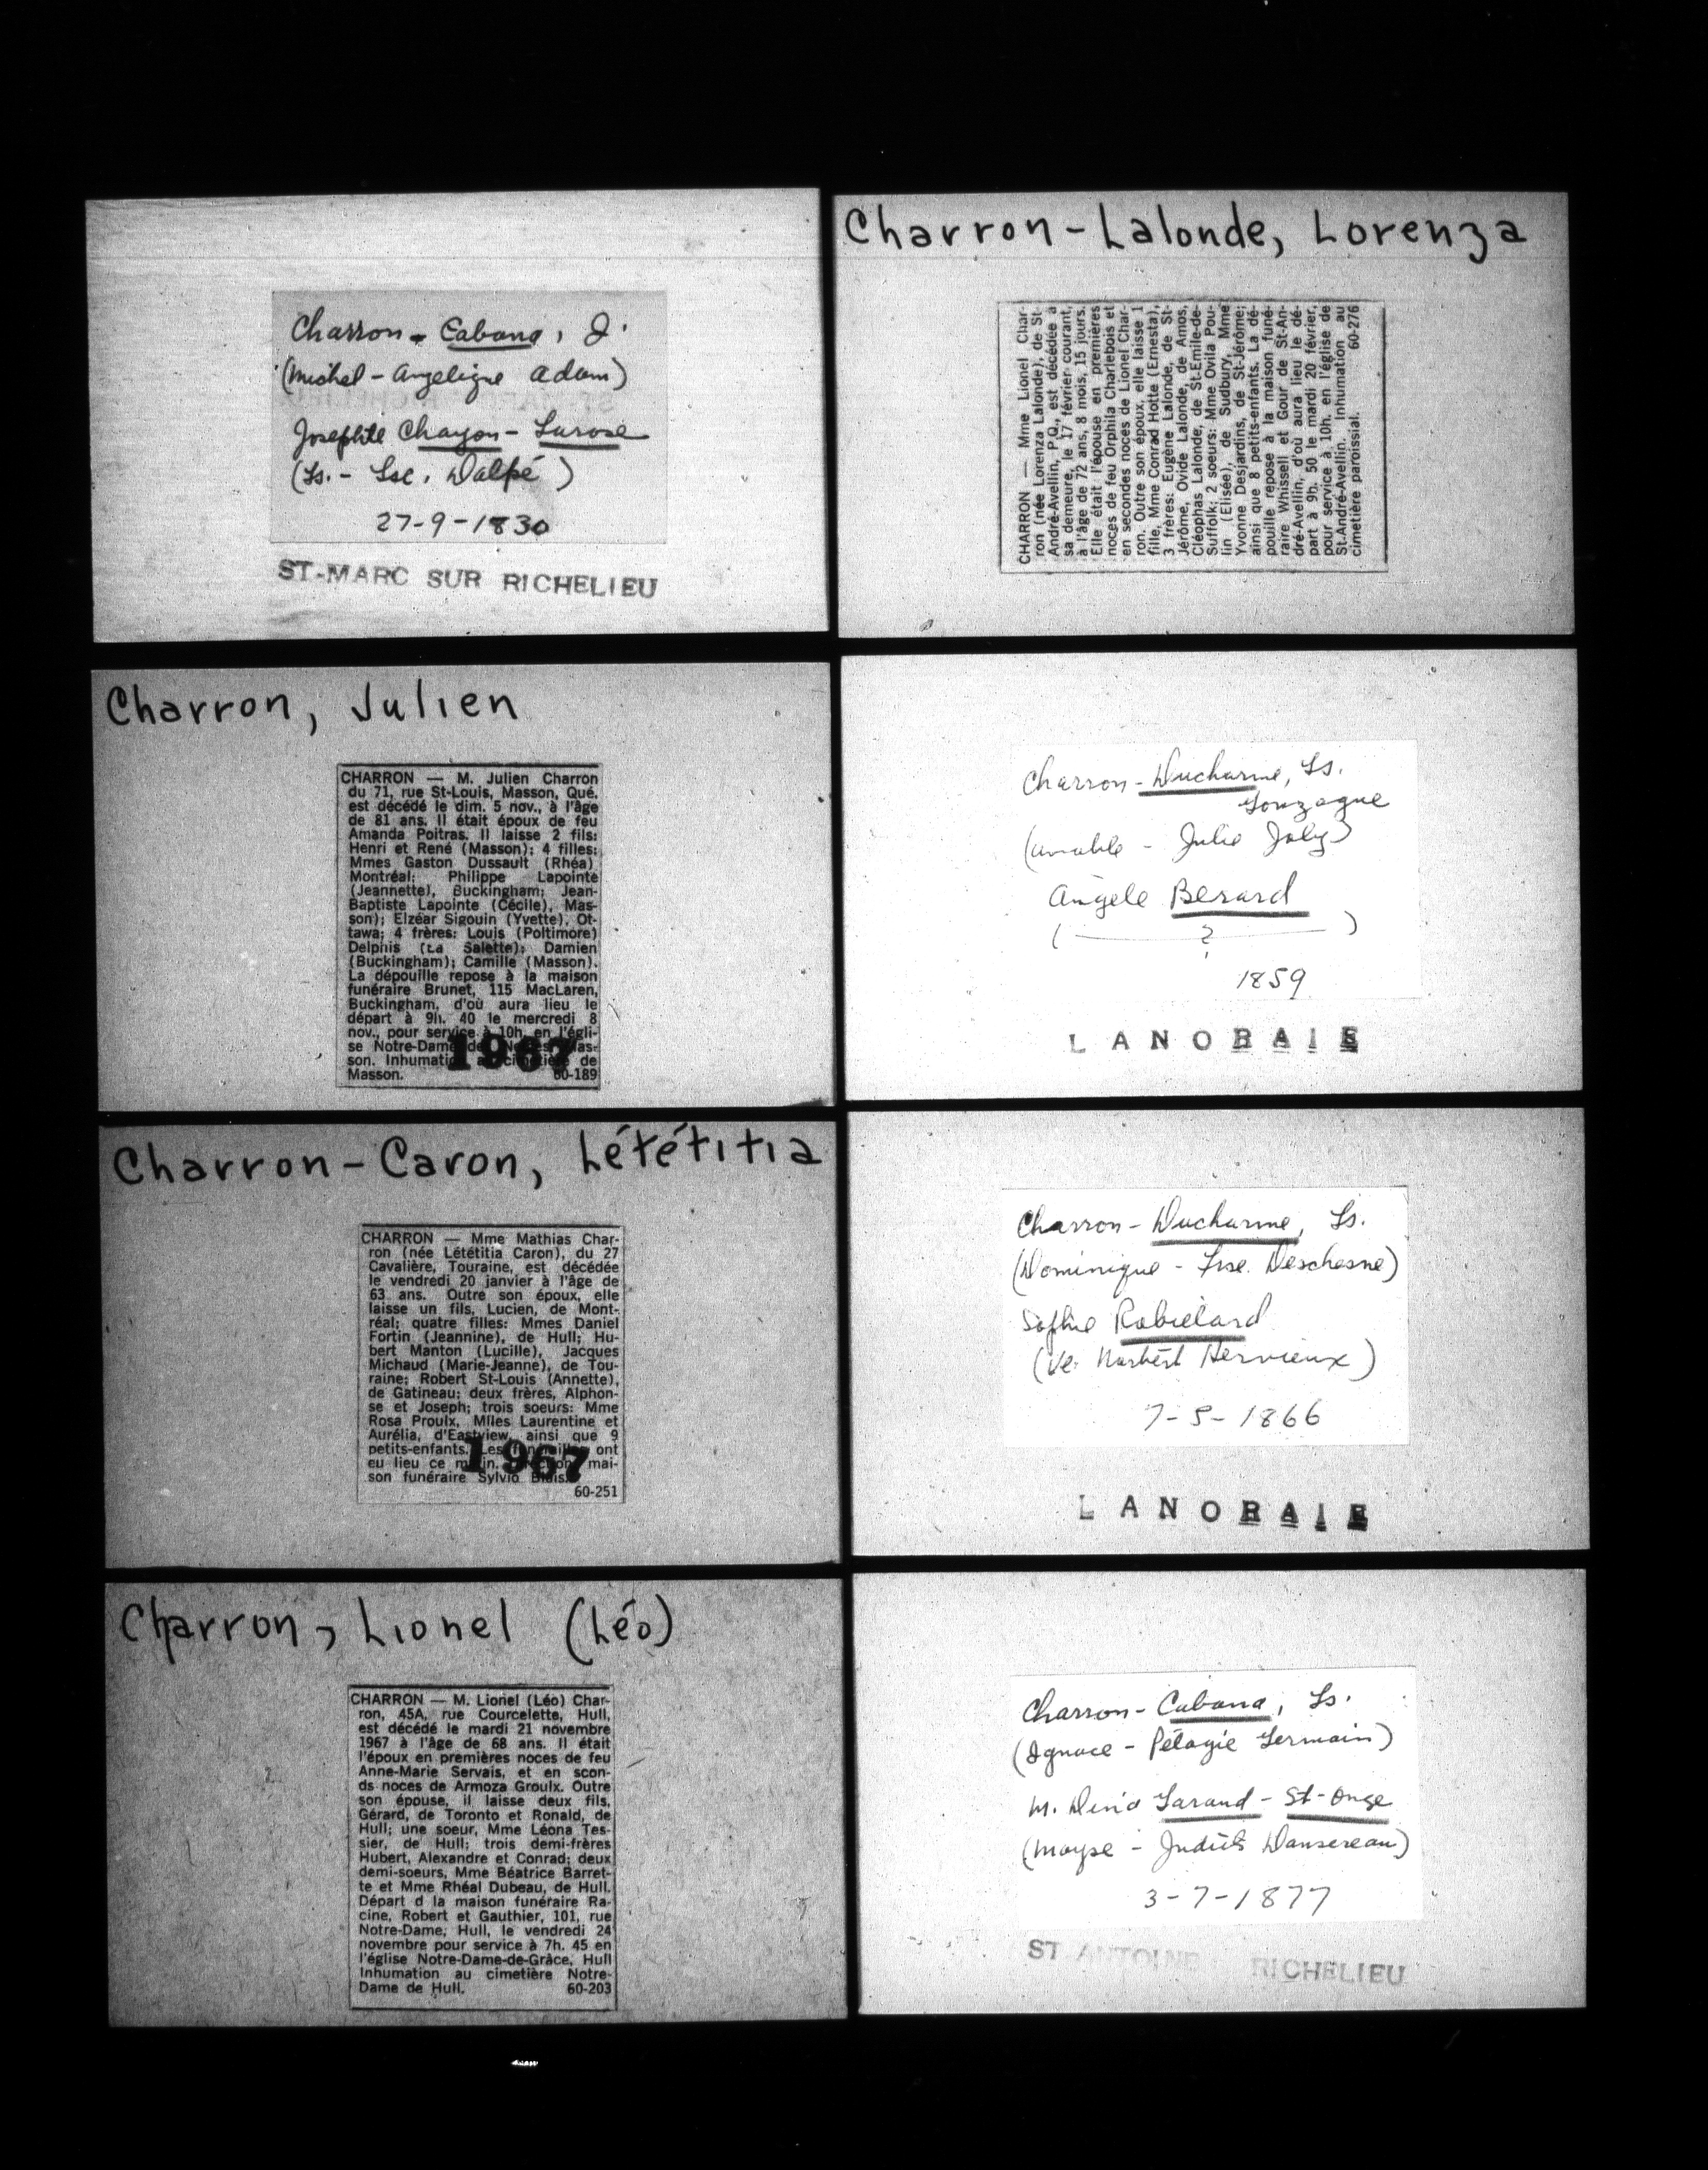 Charron - Cabana, J.
(Michel - Angelique Adam)
Josephte Chagon - Larose
(Ls. - Lse. Dalpé)
27-9-1830
ST-MARC SUR RICHELIEU
Charron, Julien
CHARRON — M. Julien Charron
du 71, rue St-Louis, Masson, Qué.
est décédé le dim. 5 nov., à l'âge
de 81 ans. Il était époux de feu
Amanda Poitras. Il laisse 2 fils:
Henri et René (Masson); 4 filles:
Mmes Gaston Dussault (Rhéa)
Montréal; Philippe Lapointe
(Jeannette), Buckingham; Jean-
Baptiste Lapointe (Cécile), Mas-
son); Elzéar Sigouin (Yvette), Ot-
tawa; 4 frères: Louis (Poltimore)
Delphis (La Salette); Damien
(Buckingham); Camille (Masson).
La dépouille repose à la maison
funéraire Brunet, 115 MacLaren,
Buckingham, d'où aura lieu le
départ à 9h. 40 le mercredi 8
nov., pour service à 10h. en l'égli-
se Notre-Dame des Neiges, Mas-
son. Inhumation au cimetière de
Masson. 60-189
1967
Charron-Caron, Lététitia
CHARRON — Mme Mathias Char-
ron (née Lététitia Caron), du 27
Cavalière, Touraine, est décédée
le vendredi 20 janvier à l'âge de
63 ans. Outre son époux, elle
laisse un fils, Lucien, de Mont-
réal; quatre filles: Mmes Daniel
Fortin (Jeannine), de Hull; Hu-
bert Manton (Lucille), Jacques
Michaud (Marie-Jeanne), de Tou-
raine; Robert St-Louis (Annette),
de Gatineau; deux frères, Alphon-
se et Joseph; trois soeurs: Mme
Rosa Proulx, Mlles Laurentine et
Aurélia, d'Eastview, ainsi que 9
petits-enfants. Les funérailles ont
eu lieu ce matin. Direction mai-
son funéraire Sylvio Blais.
60-251
1967
Charron, Lionel (Léo)
CHARRON — M. Lionel (Léo) Char-
ron, 45A, rue Courcelette, Hull,
est décédé le mardi 21 novembre
1967 à l'âge de 68 ans. Il était
l'époux en premières noces de feu
Anne-Marie Servais, et en scon-
ds noces de Armoza Groulx. Outre
son épouse, il laisse deux fils,
Gérard, de Toronto et Ronald, de
Hull; une soeur, Mme Léona Tes-
sier, de Hull; trois demi-frères
Hubert, Alexandre et Conrad; deux
demi-soeurs, Mme Béatrice Barret-
te et Mme Rhéal Dubeau, de Hull.
Départ d la maison funéraire Ra-
cine, Robert et Gauthier, 101, rue
Notre-Dame, Hull, le vendredi 24
novembre pour service à 7h. 45 en
l'église Notre-Dame-de-Grâce, Hull
Inhumation au cimetière Notre-
Dame de Hull. 60-203
Charron-Lalonde, Lorenza
CHARRON — Mme Lionel Char-
ron (née Lorenza Lalonde), de St-
André-Avellin, P.Q., est décédée à
sa demeure, le 17 février courant,
à l'âge de 72 ans, 8 mois, 15 jours.
Elle était l'épouse en premières
noces de feu Orphila Charlebois et
en secondes noces de Lionel Char-
ron. Outre son époux, elle laisse 1
fille, Mme Conrad Hotte (Ernesta),
3 frères: Eugène Lalonde, de St-
Jérôme, Ovide Lalonde, de Amos,
Cléophas Lalonde, de St-Emile-de-
Suffolk; 2 soeurs: Mme Ovila Pou-
lin (Elisée), de Sudbury, Mme
Yvonne Desjardins, de St-Jérôme;
ainsi que 8 petits-enfants. La dé-
pouille repose à la maison funé-
raire Whissell et Gour de St-An-
dré-Avellin, d'où aura lieu le dé-
part à 9h. 50 le mardi 20 février,
pour service à 10h. en l'église de
St-André-Avellin. Inhumation au
cimetière paroissial. 60-276
Charron - Ducharme, Ls.
Gonzague
(Amable - Julie Joly)
Angèle Berard
( ? )
1859
LANORAIE
Charron - Ducharme, Ls.
(Dominique - Frse. Deschesne)
Sophie Robielard
(Ve. Norbert Hervieux)
7-5-1866
LANORAIE
Charron - Cabana, Ls.
(Ignace - Pélagie Germain)
M. Garand - St-Onge
(Moyse - Judith Dansereau)
3-7-1877
ST ANTOINE RICHELIEU